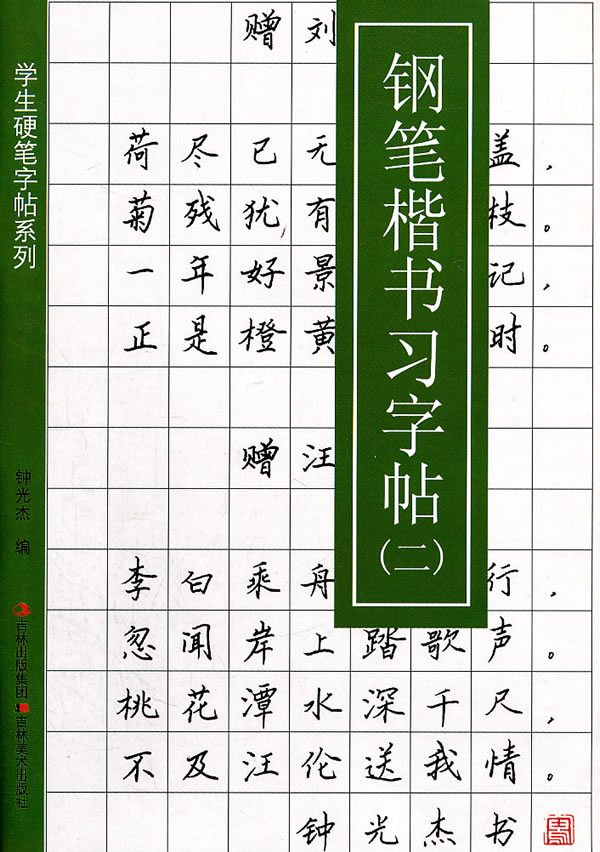 学生硬笔字帖系列
钟光杰 编
吉林出版集团 吉林美术出版社
钢笔楷书习字帖(二)
赠刘
荷尽已无 盖，
菊残犹有 枝。
一年好景 记，
正是橙黄 时。
赠汪
李白乘舟 行，
忽闻岸上踏歌声。
桃花潭水深千尺，
不及汪伦送我情。
钟光杰书